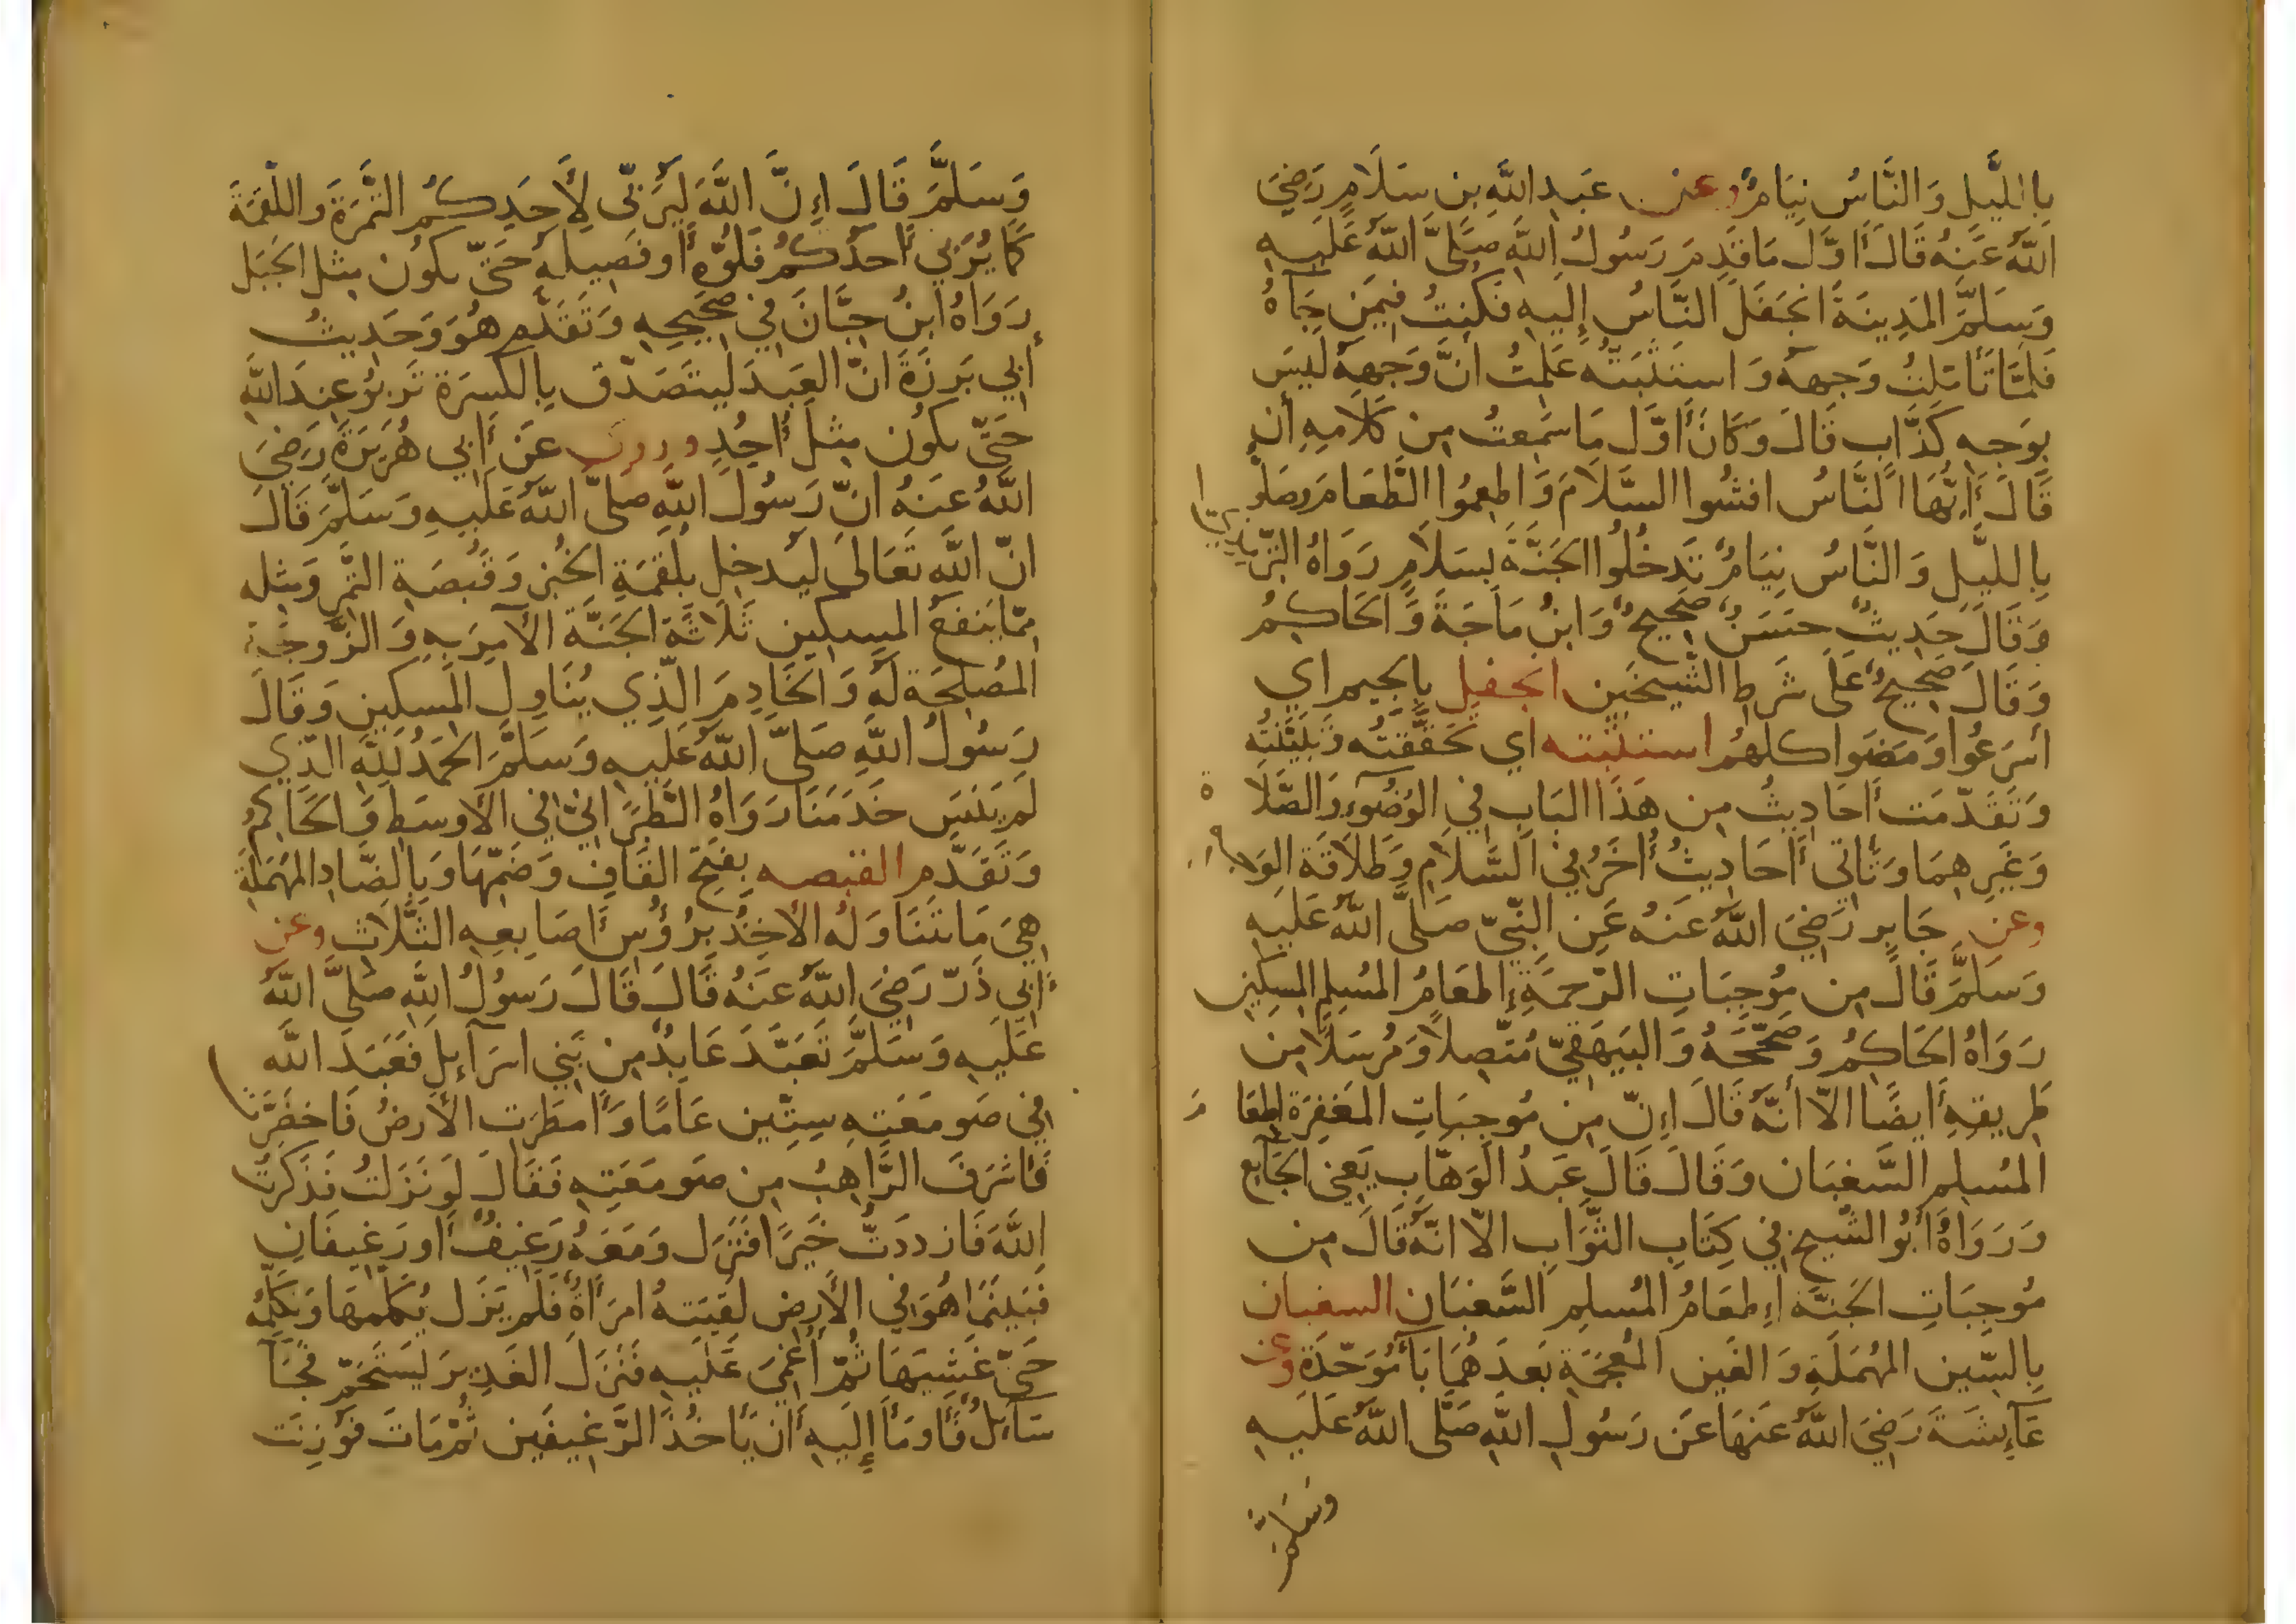 بِاللَّيلِ وَالنَّاسُ نِيَامٌ وعن عَبدِ اللَّهِ بن سَلَامٍ رَضِيَ
اللَّهُ عَنهُ قَالَ أَوَّل مَا قَدِمَ رَسُولُ اللَّهِ صَلَّى اللَّهُ عَلَيهِ
وَسَلَّمَ المَدِينَةَ انجَفَلَ النَّاسُ إِلَيهِ فَكُنتُ فِيمَن جَآءَهُ
فَلَمَّا تَأَمَّلتُ وَجهَهُ وَاستَثبَتُّه عَلِمتُ أَنَّ وَجهَهُ لَيسَ
بِوَجهِ كَذَّاب قَالَ وَكَانَ أَوَّل مَا سَمِعتُ مِن كَلَامِهِ أَن
قَالَ أَيُّهَا النَّاسُ افشُوا السَّلَامَ وَاطعِمُوا الطَّعَامَ وصَلُّوا
بِاللَّيلِ وَالنَّاسُ نِيَامٌ تَدخُلُوا الجَنَّةَ بِسَلَامٍ رَوَاهُ التِّرمِذِيّ
وَقَالَ حَدِيثٌ حَسَنٌ صَحِيحٌ وَابنُ مَاجَةَ وَالحَاكِمُ
وَقَالَ صَحِيحٌ عَلَى شَرطِ الشَّيخَين انجفل بِالجِيم اي
أسرَعُوا وَمَضَوا كلهُم استثبته اي تَحَقَّقتُه وَتَبَيَّنتُه
وَتَقَدّمَت أَحَادِيثُ مِن هَذَا البَابِ فِي الوُضُوءِ وَالصَّلَاة
وَغَيرِهِمَا وَتَأتي أَحَادِيثُ أُخَرُ فِي السَّلَامِ وَطَلَاقَة الوَجه
وعن جَابِرٍ رَضِيَ اللَّهُ عَنهُ عَنِ النَّبِيّ صَلَّى اللَّهُ عَلَيهِ
وَسَلَّمَ قَالَ مِن مُوجِبَاتِ الرَّحمَةِ إِطعَامُ المُسلِمِ المِسكِينِ
رَوَاهُ الحَاكِمُ وَصَحَّحَهُ وَالبَيهَقِيّ مُتّصِلًا وَمُرسَلًا مِن
طَرِيقِهِ أَيضًا الّا أَنَّهُ قَالَ إِنّ مِن مُوجِبَاتِ المَغفِرَة اطعَام
المُسلِمِ السَّغبَان وَقَالَ قَالَ عَبدُ الوَهَّابِ يَعنِي الجَايِع
وَرَوَاهُ أَبُو الشَّيخ فِي كِتَابِ الثَّوَابِ الّا انّهُ قَالَ مِن
مُوجِبَاتِ الجَنَّةِ إِطعَامُ المُسلِمِ السَّغبَان السغبان
بِالسِّين المُهمَلَةِ وَالغَين المُعجَمَةِ بَعدَهُمَا بَآءٌ مُوَحَّدَةٌ وعن
عَآئِشَةَ رَضِيَ اللَّهُ عَنهَا عَن رَسُولِ اللَّهِ صَلَّى اللَّهُ عَلَيهِ
وَسَلَّمَ
وَسَلَّمَ قَالَ إِنَّ اللَّهَ لَيُرَبّى لِأَحَدِكُم التَّمرَةَ وَاللُّقمَةَ
كَمَا يُرَبِي أَحَدُكُم فَلُوَّهُ أَو فَصِيلَهُ حَتّى يكُون مِثل الجَبَل
رَوَاهُ ابنُ حِبَّانَ فِي صَحِيحِهِ وَتَقَدَّم هُوَ وَحَدِيثُ
أَبِي بَرزَةَ انّ العَبدَ لَيَتَصَدّق بِالكسرَة تَربُو عِندَ اللَّهِ
حَتّى يكُون مِثل أُحُدٍ وروي عَن أَبِي هُرَيرَةَ رَضِيَ
اللَّهُ عَنهُ انّ رَسُولَ اللَّهِ صَلَّى اللَّهُ عَلَيهِ وَسَلَّمَ قَالَ
انّ اللَّهَ تَعَالَى لَيُدخِل بِلُقمَةِ الخُبزِ وَقَبصَةِ التَّمرِ وَمِثله
مِمّا يَنفَعُ المِسكِين ثَلَاثَةً الجَنَّةَ الآمِرَ بِهِ وَالزَّوجَة
المُصلِحَة لَهُ وَالخَادِمَ الَّذِي يُنَاوِل المِسكِين وَقَالَ
رَسُولُ اللَّهِ صَلَّى اللَّهُ عَلَيهِ وَسَلَّمَ الحَمدُ لِلَّهِ الَّذِي
لَم يَنسَ خَدَمَنَا رَوَاهُ الطَّبَرَانِيّ فِي الأَوسَطِ وَالحَاكِمُ
وَتَقَدَّم القبصه بِفَتحِ القَافِ وَضَمِّهَا وَبِالصَّادِ المُهمَلَة
هِيَ مَا يَتَنَاوَلُهُ الأَخِذُ بِرُؤُسِ أَصَابِعِهِ الثَّلَاث وعن
أَبِي ذَرّ رَضِيَ اللَّهُ عَنهُ قَالَ قَالَ رَسُولُ اللَّهِ صَلَّى اللَّهُ
عَلَيهِ وَسَلَّمَ تَعَبَّدَ عَابِدٌ مِن بَنِي اسرَآءِيل فَعَبَدَ اللَّه
فِي صَومَعَتِهِ سِتِّين عَامًا وَأَمطَرَت الأَرضُ فَاخضَرَّت
فَأَشرَفَ الرَّاهِبُ مِن صَومَعَتِهِ فَقَالَ لَو نَزَلتُ فَذَكَرتُ
اللَّهَ فَازدَدتُّ خَيرًا فَنَزَل وَمَعَهُ رَغِيفٌ أَو رَغِيفَانِ
فَبَينَمَا هُوَ فِي الأَرضِ لَقِيَتهُ امرَأَةٌ فَلَم يَزَل يُكَلّمهَا وَتُكَلِّمُه
حَتّى غَشِيَهَا ثُمّ أُغمِيَ عَلَيهِ فَنَزَلَ الغَدِيرَ لِيَستَحِمّ فَجَآءَ
سَآئِلٌ فَأَومَأَ إِلَيهِ أَن يَأخُذَ الرَّغِيفَين ثُمّ مَاتَ فَوُزِنَت